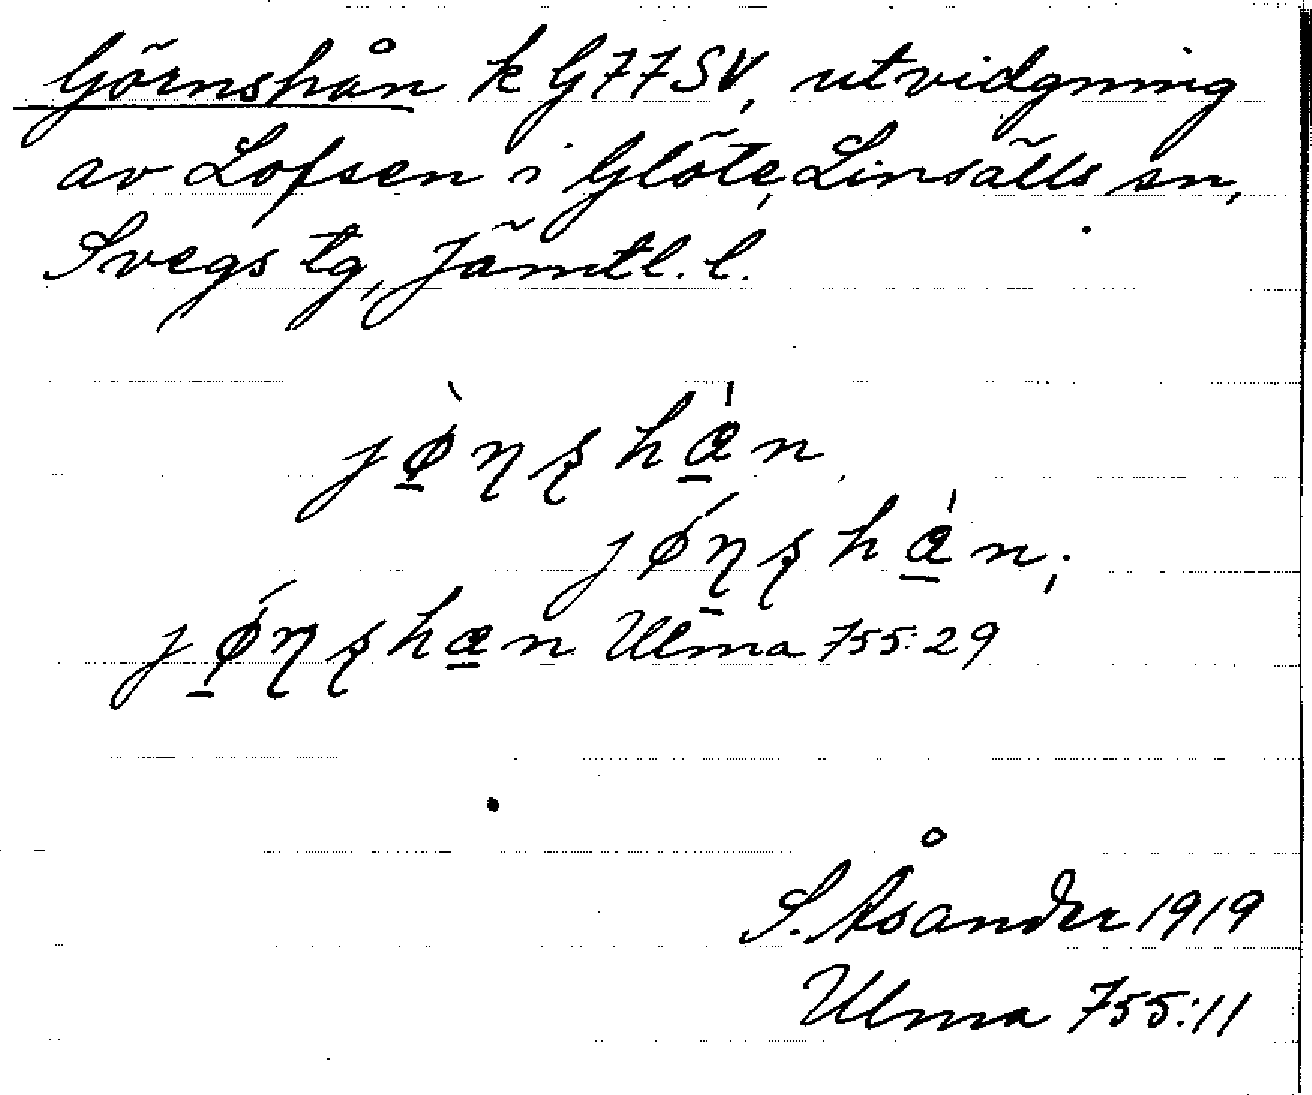 Görnshån k G77SV, utvidgning
av Lofsen i Glöte, Linsälls sn,
Svegs tg, Jämtl. l.
jø̱̀ɳʂhæ̱̀n
jǿɳ̱ʂhæ̱̀n;
jǿ̱ɳʂhæ̱n Ulma 755:29
S. Åsander 1919
Ulma 755:11